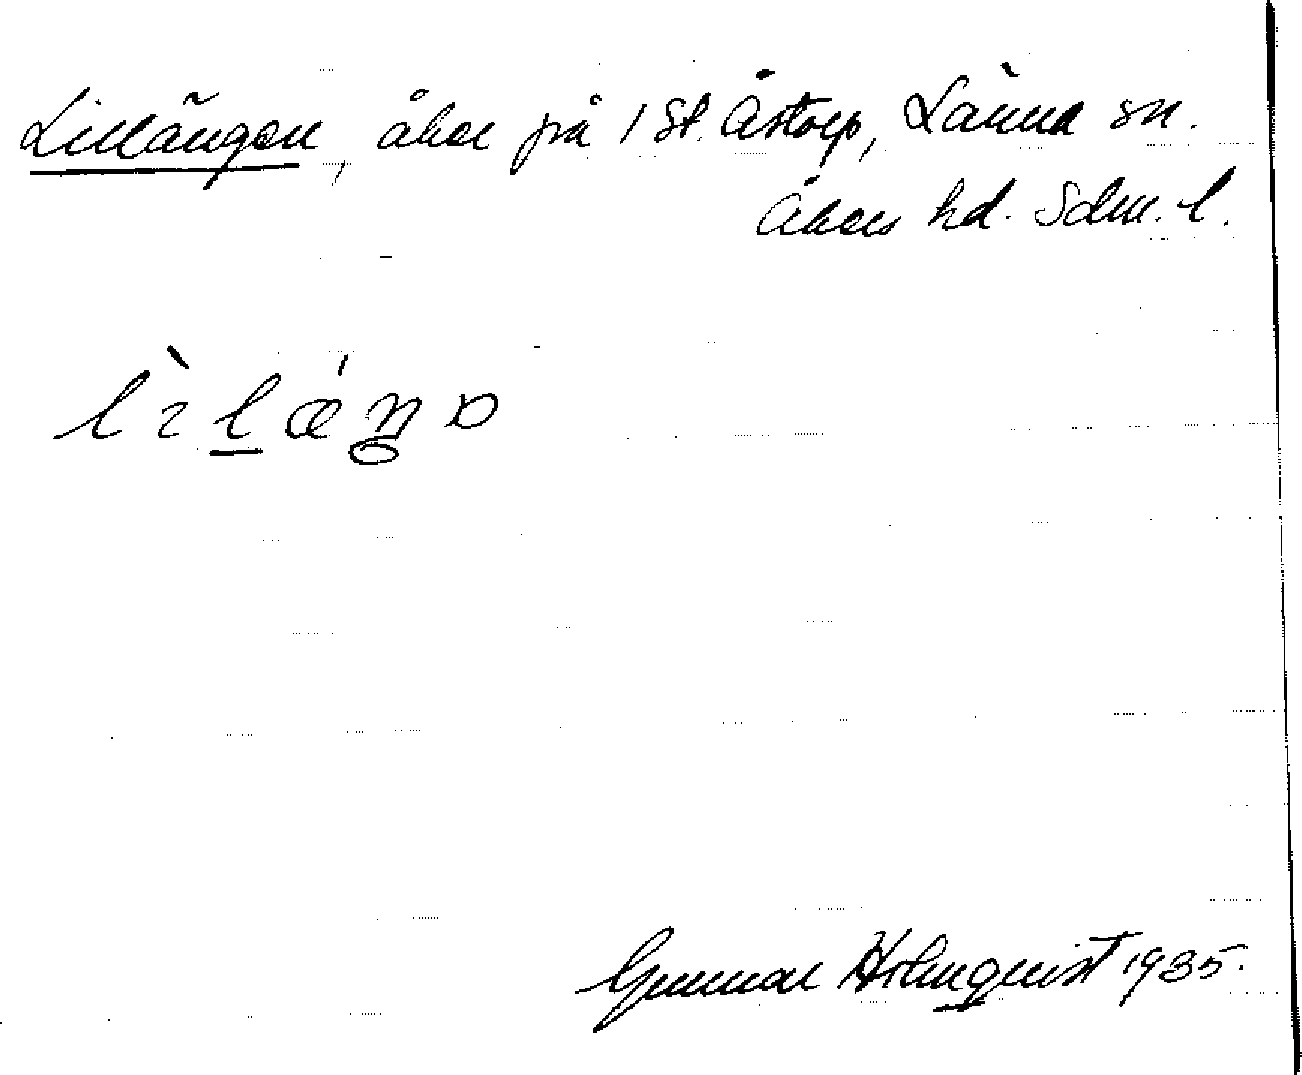 Lillängen, åker på 1 St. Åstorp, Länna sn.
Åkers hd. Sdm. l.
lìlǽŋa
Gunnar Holmquist 1935.